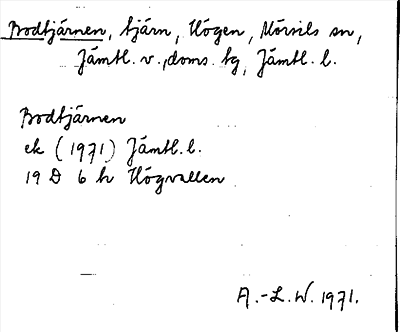 Bodtjärnen, tjärn, Högen, Mörsils sn,
Jämtl. v., doms. tg, Jämtl. l.
Bodtjärnen
ek (1971) Jämtl. l.
19 D 6 h Högvallen
A.-L. W. 1971.